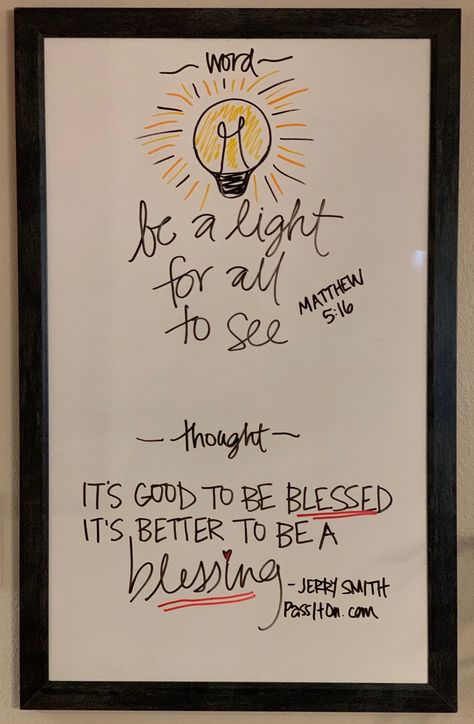 ~ word ~
be a light
for all
to see
MATTHEW
5:16
- thought ~
IT'S GOOD TO BE BLESSED
IT'S BETTER TO BE A
blessing
- JERRY SMITH
PassItOn.com